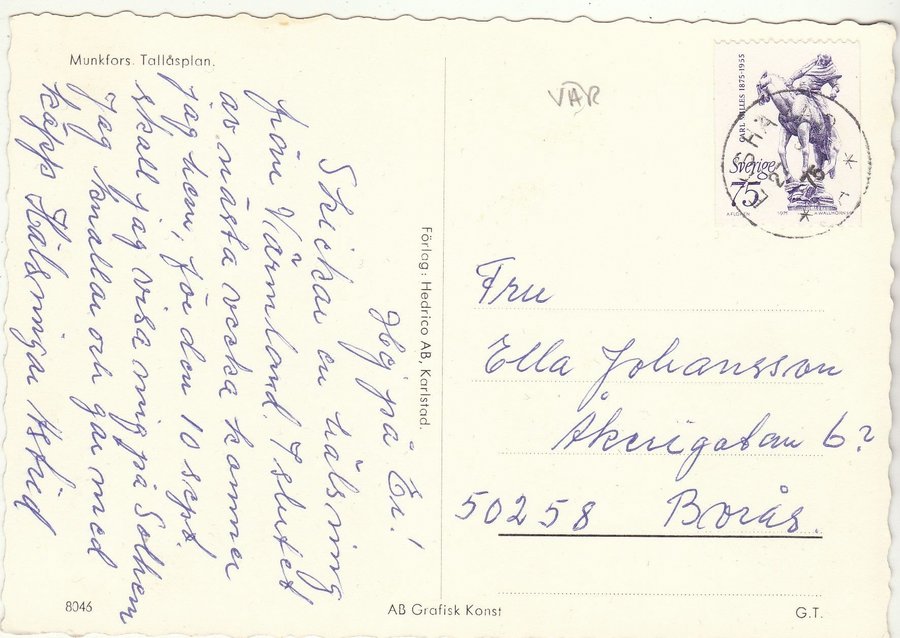 Munkfors. Tallåsplan.
Hej på Er!
Skickar en hälsning
från Värmland. I slutet
av nästa vecka kommer
jag hem, för den 10 sept.
skall jag visa mig på Solhem
jag knallar och går med
käpp Hälsningar Astrid
Förlag: Hedrico AB, Karlstad.
8046
AB Grafisk Konst
G.T.
VAR
CARL MILLES 1875-1955
Sverige
75
1975
75
Fru
Ella Johansson
Åkerigatan 6?
50258 Borås.